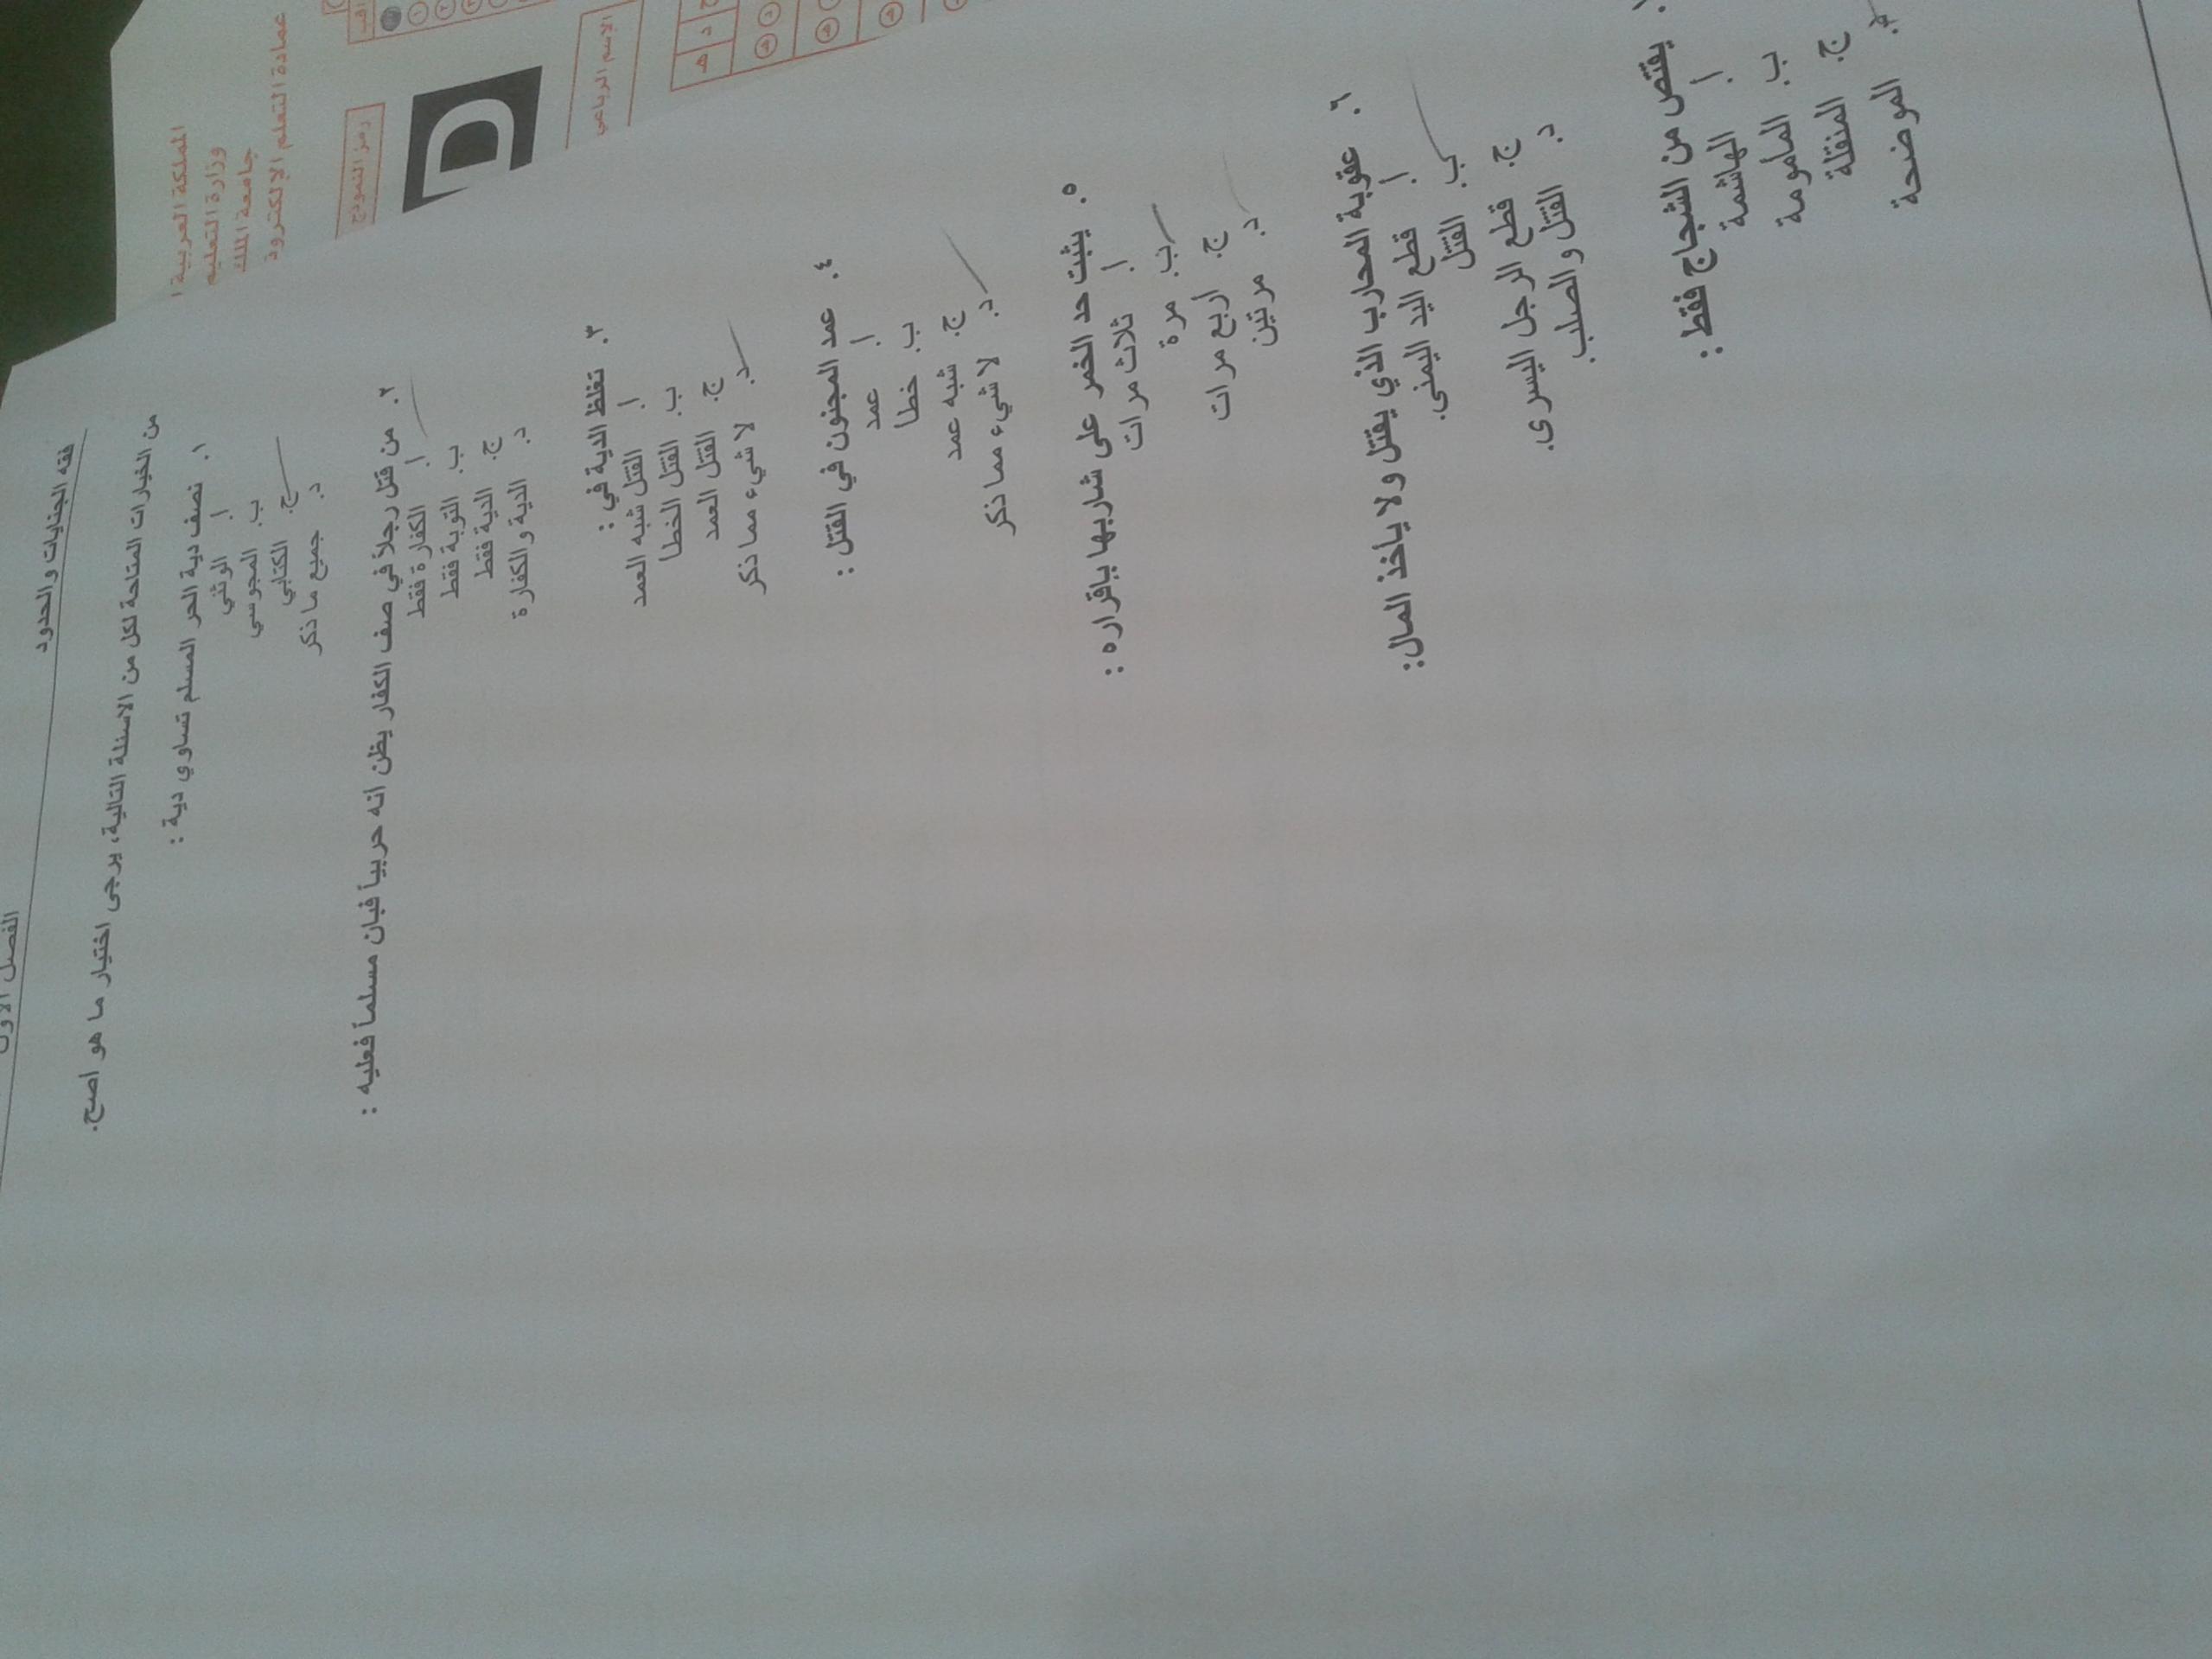 المملكة العربية ا
وزارة التعليم
جامعة الملك
عمادة التعلم الإلكترو
رمز النموذج
D
الاسم الرباعي
ج د هـ
الفصل الأول
فقه الجنايات والحدود
من الخيارات المتاحة لكل من الاسئلة التالية، يرجى اختيار ما هو اصح.
١. نصف دية الحر المسلم تساوي دية :
أ. الوثني
ب. المجوسي
ج. الكتابي
د. جميع ما ذكر
٢. من قتل رجلاً في صف الكفار يظن أنه حربياً فبان مسلماً فعليه :
أ. الكفارة فقط
ب. التوبة فقط
ج. الدية فقط
د. الدية والكفارة
٣. تغلظ الدية في :
أ. القتل شبه العمد
ب. القتل الخطا
ج. القتل العمد
د. لا شيء مما ذكر
٤. عمد المجنون في القتل :
أ. عمد
ب. خطا
ج. شبه عمد
د. لا شيء مما ذكر
٥. يثبت حد الخمر على شاربها بإقراره :
أ. ثلاث مرات
ب. مرة
ج. اربع مرات
د. مرتين
٦. عقوبة المحارب الذي يقتل ولا يأخذ المال:
أ. قطع اليد اليمنى.
ب. القتل
ج. قطع الرجل اليسرى.
د. القتل والصلب
يقتص من الشجاج فقط :
أ. الهاشمة
ب. المأمومة
ج. المنقلة
د. الموضحة